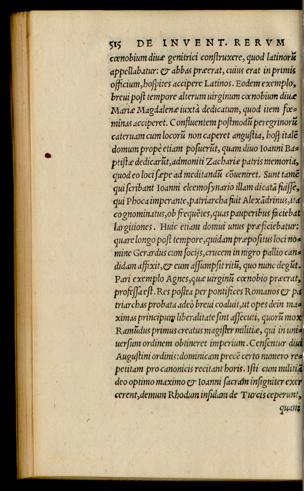 515 DE INVENT. RERVM
cœnobium diuæ genitrici construxere, quod latinorũ
appellabatur: & abbas præerat, cuius erat in primis
officium, hospites accipere Latinos. Eodem exemplo,
breui post tempore alterum uirginum cœnobium diuæ
Mariæ Magdalenæ iuxtà dedicatum, quod item fœ-
minas acciperet. Confluentem postmodũ peregrinorũ
cateruam cum locorũ non caperet angustia, hospitale
domum propè etiam posuerũt, quam diuo Ioanni Ba-
ptistæ dedicarũt, admoniti Zachariæ patris memoria,
quod eo loci sæpe ad meditandũ cõueniret. Sunt tamẽ
qui scribant Ioanni eleemosynario illam dicatã fuisse,
qui Phoca imperante, patriarcha fuit Alexãdrinus, ita
cognominatus, ob frequẽtes, quas pauperibus faciebat
largitiones. Huic etiam domui unus præficiebatur:
quare longo post tempore, quidam præpositus loci no-
mine Gerardus cum socijs, crucem in nigro pallio can-
didam affixit, & eum assumpsit ritũ, quo nunc degũt.
Pari exemplo Agnes, quæ uirginũ cœnobio præerat,
professa est. Res postea per pontifices Romanos & pa
triarchas probata adeò breui coaluit, ut opes dein ma-
ximas principum liberalitate sint assecuti, quorũ mox
Ramũdus primus creatus magister militiæ, qui in uni-
uersum ordinem obtineret imperium. Censentur diui
Augustini ordinis: dominicam precẽ certo numero re-
petitam pro canonicis recitant horis. Isti cum militiã
deo optimo maximo & Ioanni sacram insigniter exer
cerent, demum Rhodum insulam de Turcis ceperunt,
quam